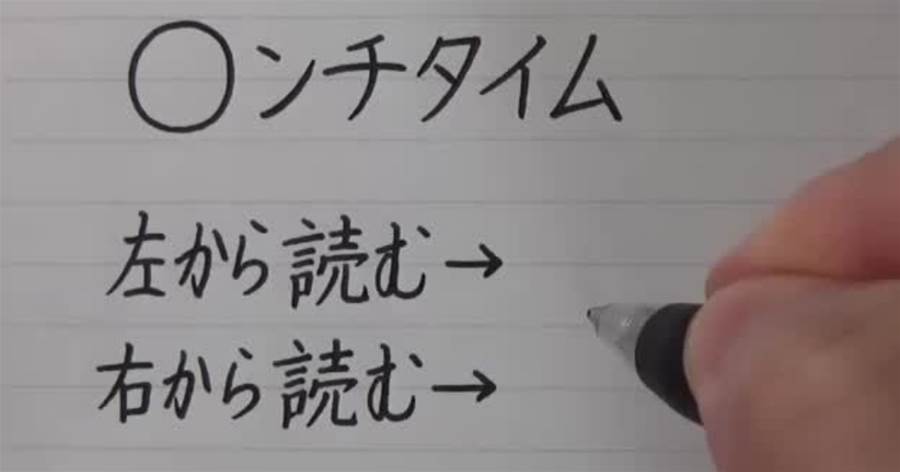 ◯ンチタイム
左から読む→
右から読む→